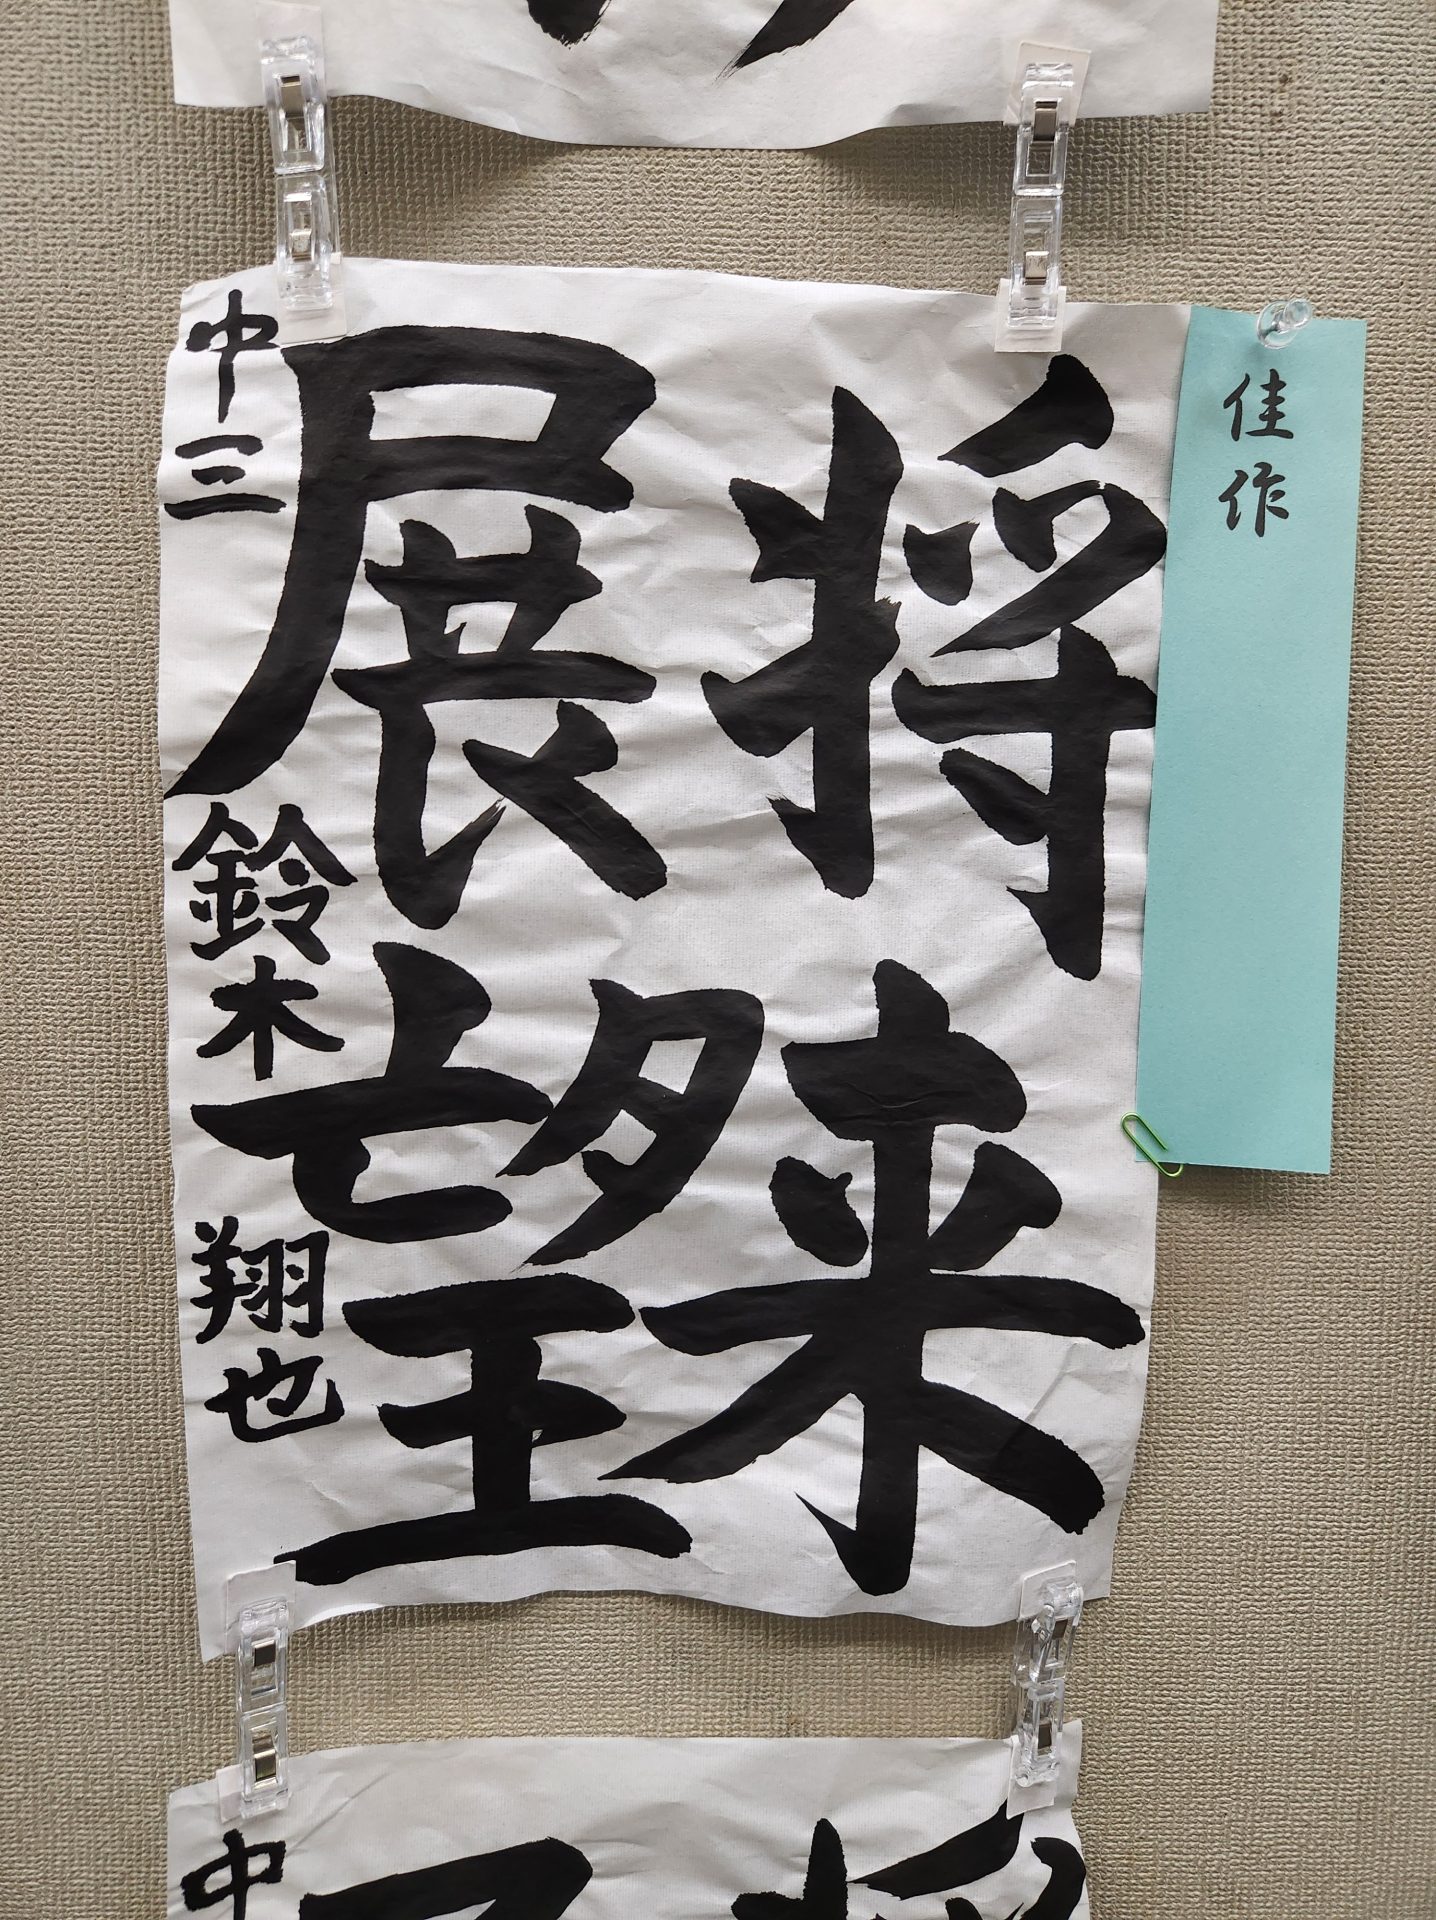 佳作
将来
展望
中三 鈴木 翔也
中